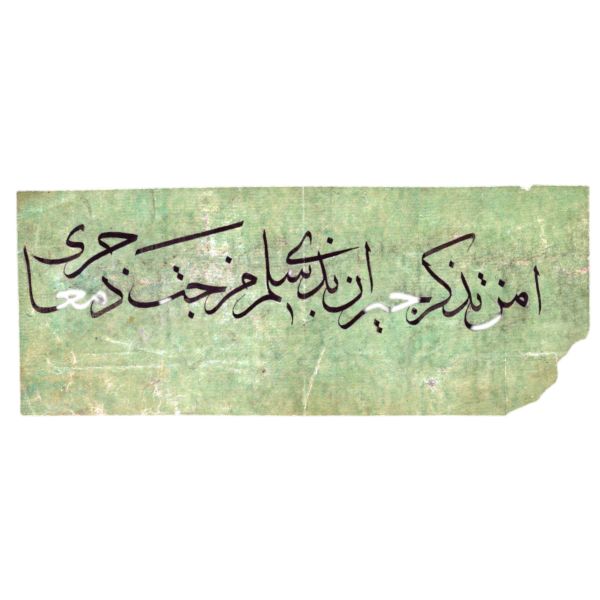 امن تذكر جيران بذى سلم مزجت دمعا جرى